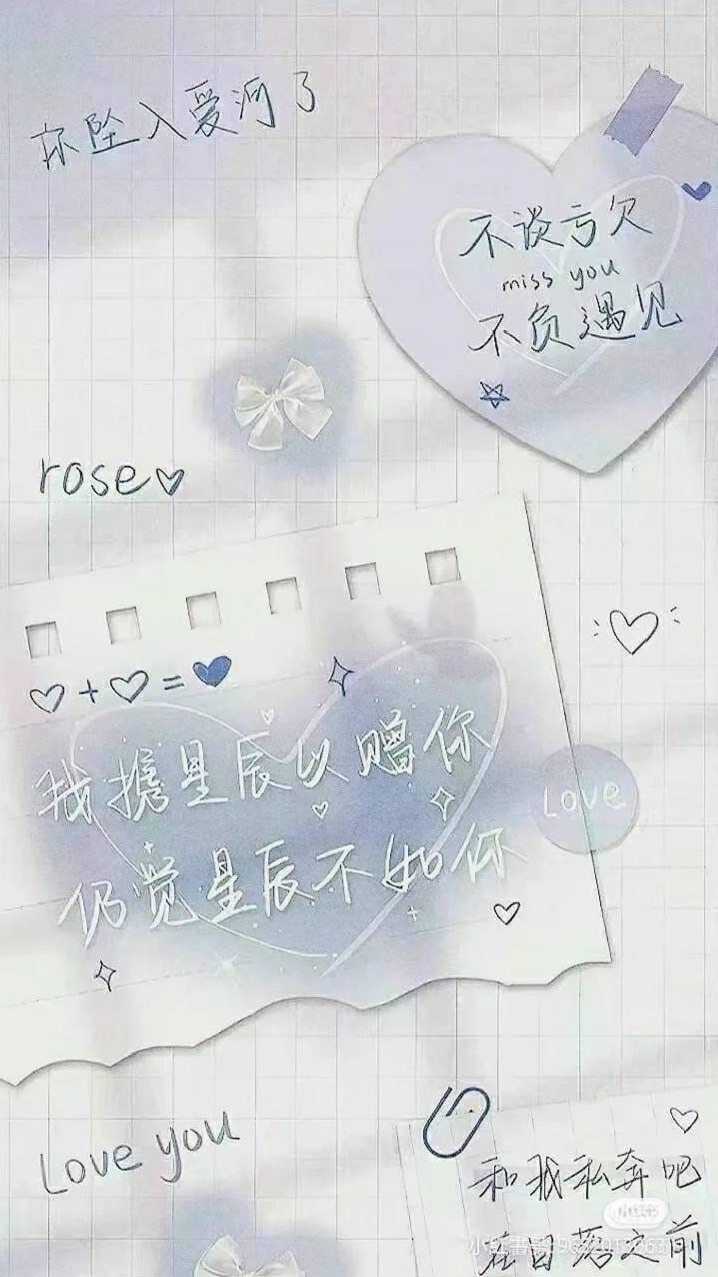 坠入爱河了
不谈亏欠
miss you
不负遇见
rose
+ =
我携星辰以赠你
仍觉星辰不如你
Love
Love you
和我私奔吧
在日落之前
小红书